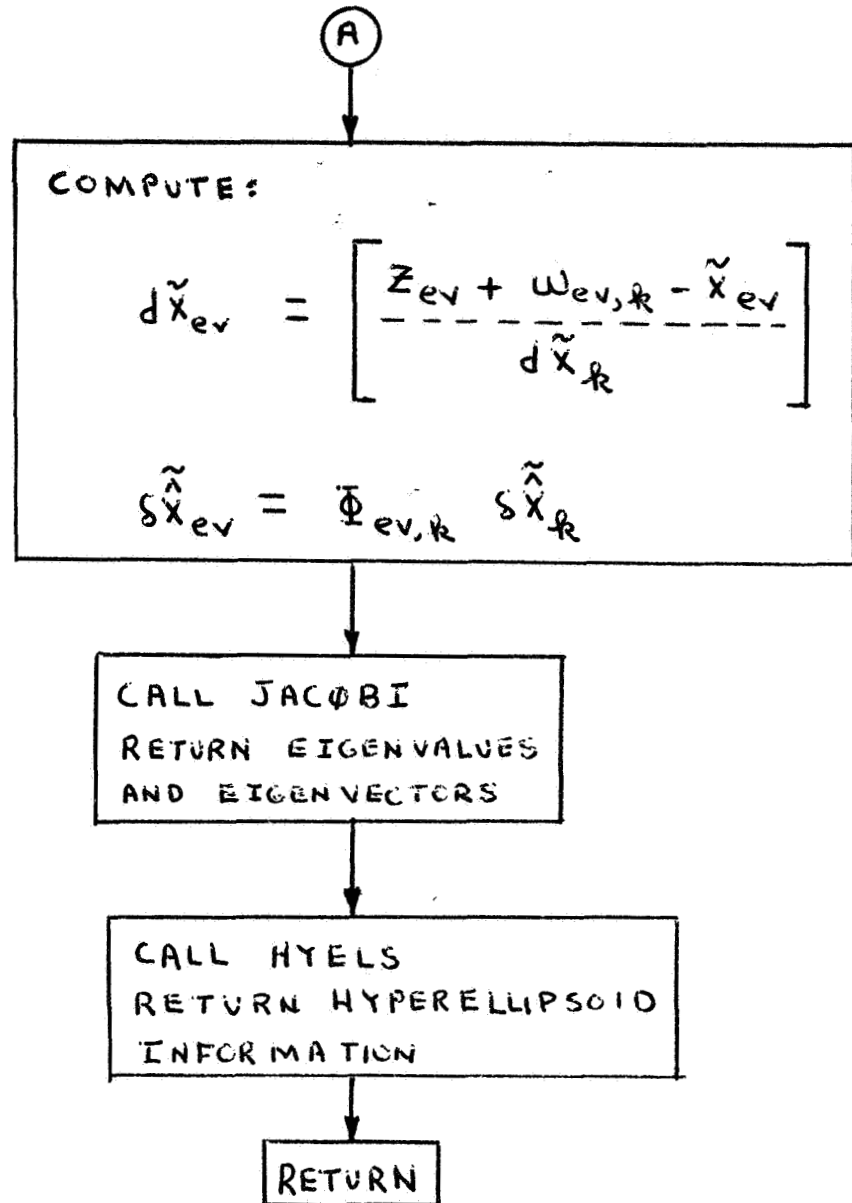 A
COMPUTE:
dx̃_ev = [ z_ev + ω_ev,k - x̃_ev / dx̃_k ]
δx̂̃_ev = Φ_ev,k δx̂̃_k
CALL JACØBI
RETURN EIGENVALUES
AND EIGENVECTORS
CALL HYELS
RETURN HYPERELLIPSOID
INFORMATION
RETURN